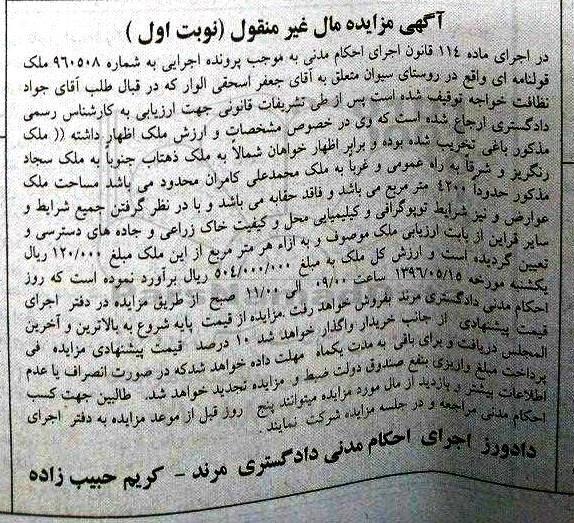 آگهی مزایده مال غیر منقول (نوبت اول )
در اجرای ماده ۱۱۴ قانون اجرای احکام مدنی به موجب پرونده اجرایی به شماره ۹۶۰۵۰۸ ملک
قولنامه ای واقع در روستای سیوان متعلق به آقای جعفر اسحقی الوار که در قبال طلب آقای جواد
نظافت خواجه توقیف شده است پس از طی تشریفات قانونی جهت ارزیابی به کارشناس رسمی
دادگستری ارجاع شده است که وی در خصوص مشخصات و ارزش ملک اظهار داشته (( ملک
مذکور باغی تخریب شده بوده و برابر اظهار خواهان شمالاً به ملک ذهتاب جنوباً به ملک سجاد
رنگریز و شرقاً به راه عمومی و غرباً به ملک محمدعلی کامران محدود می باشد مساحت ملک
مذکور حدوداً ۴۲۰۰ متر مربع می باشد و فاقد حقابه می باشد و با در نظر گرفتن جمیع شرایط و
عوارض و نیز شرایط توپوگرافی و کیلیمیایی محل و کیفیت خاک زراعی و جاده های دسترسی و
سایر قراین از بابت ارزیابی ملک موصوف و به ازاء هر متر مربع از این ملک مبلغ ۱۲۰/۰۰۰ ریال
تعیین گردیده است و ارزش کل ملک به مبلغ ۵۰۴/۰۰۰/۰۰۰ ریال برآورد نموده است که روز
یکشنبه مورخه ۱۳۹۶/۰۵/۱۵ ساعت ۰۹/۰۰ الی ۱۱/۰۰ صبح از طریق مزایده در دفتر اجرای
احکام مدنی دادگستری مرند بفروش خواهد رفت .مزایده از قیمت پایه شروع به بالاترین و آخرین
قیمت پیشنهادی از جانب خریدار واگذار خواهد شد ۱۰ درصد قیمت پیشنهادی مزایده فی
المجلس دریافت و برای باقی به مدت یکماه مهلت داده خواهد شدکه در صورت انصراف یا عدم
پرداخت مبلغ واریزی بنفع صندوق دولت ضبط و مزایده تجدید خواهد شد. طالبین جهت کسب
اطلاعات بیشتر و بازدید از مال مورد مزایده میتوانند پنج روز قبل از موعد مزایده به دفتر اجرای
احکام مدنی مراجعه و در جلسه مزایده شرکت نمایند .
دادورز اجرای احکام مدنی دادگستری مرند – کریم حبیب زاده